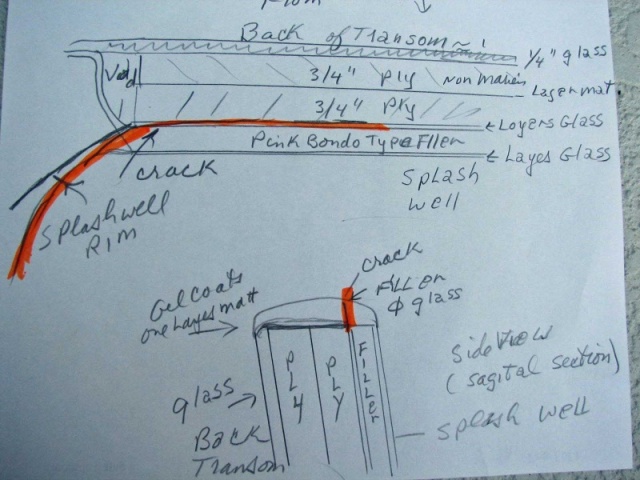 From
Back of Transom ~
1/4" glass
Void
3/4" Ply
Non Marine
Layer mat
3/4" Ply
Layers Glass
Pink Bondo Type Filler
Layes Glass
crack
Splash
well
Splashwell
Rim
crack
Filler
glass
Gel coats
one Layes matt
PLY
PLY
FILLER
Side View
(sagital section)
glass
Back
Transom
Splash well